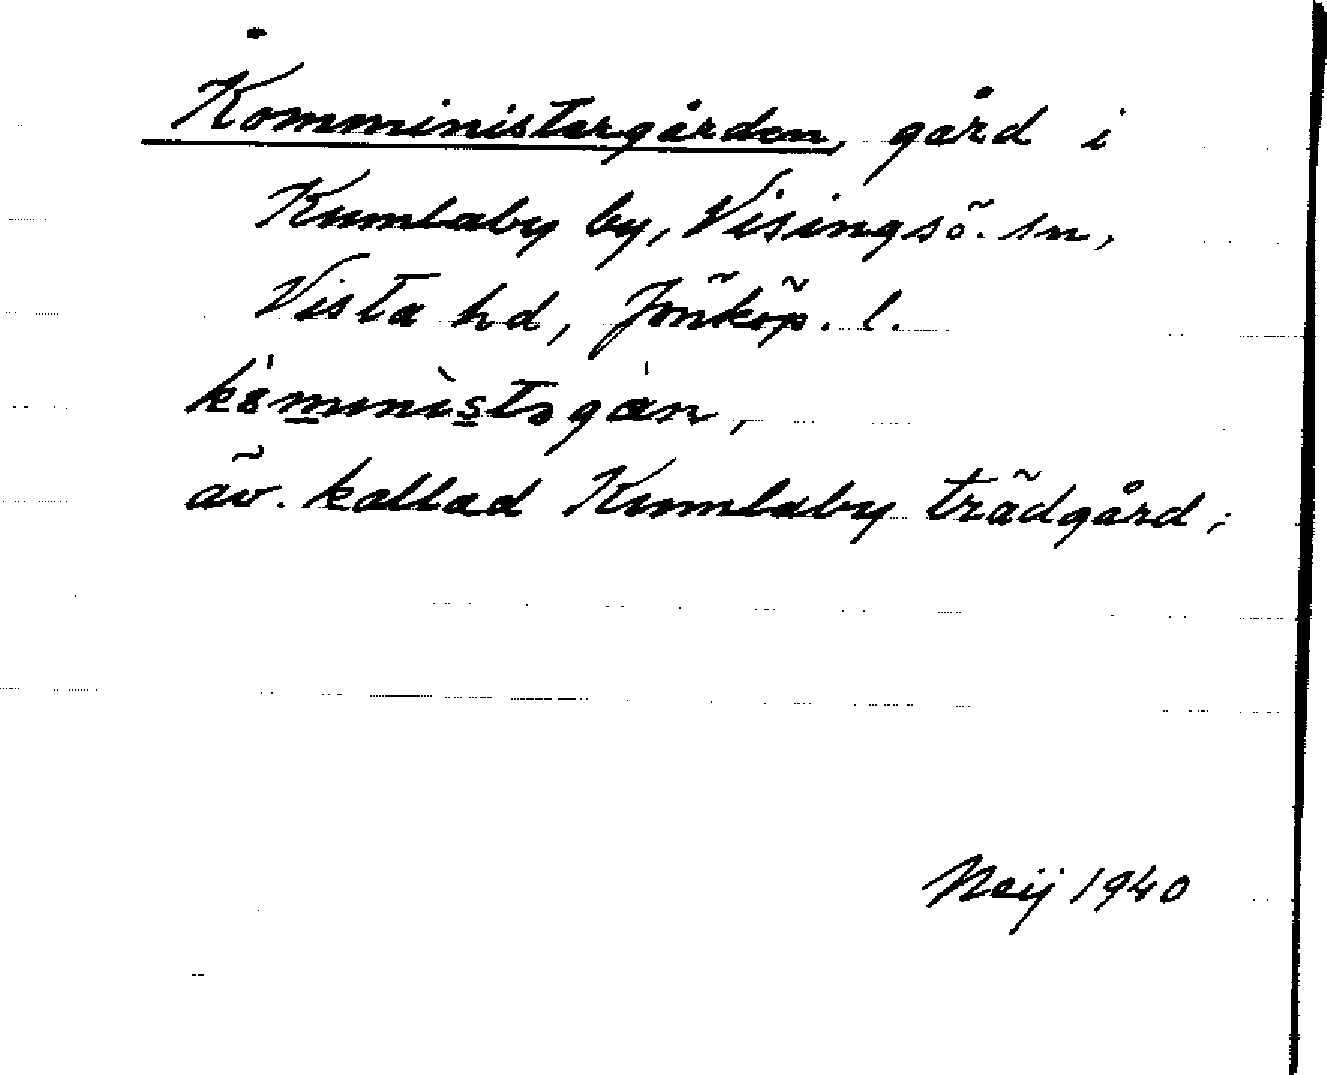 Komministergården, gård i
Kumlaby by, Visingsö sn,
Vista hd, Jönköp. l.
äv. kallad Kumlaby trädgård;
Neij 1940